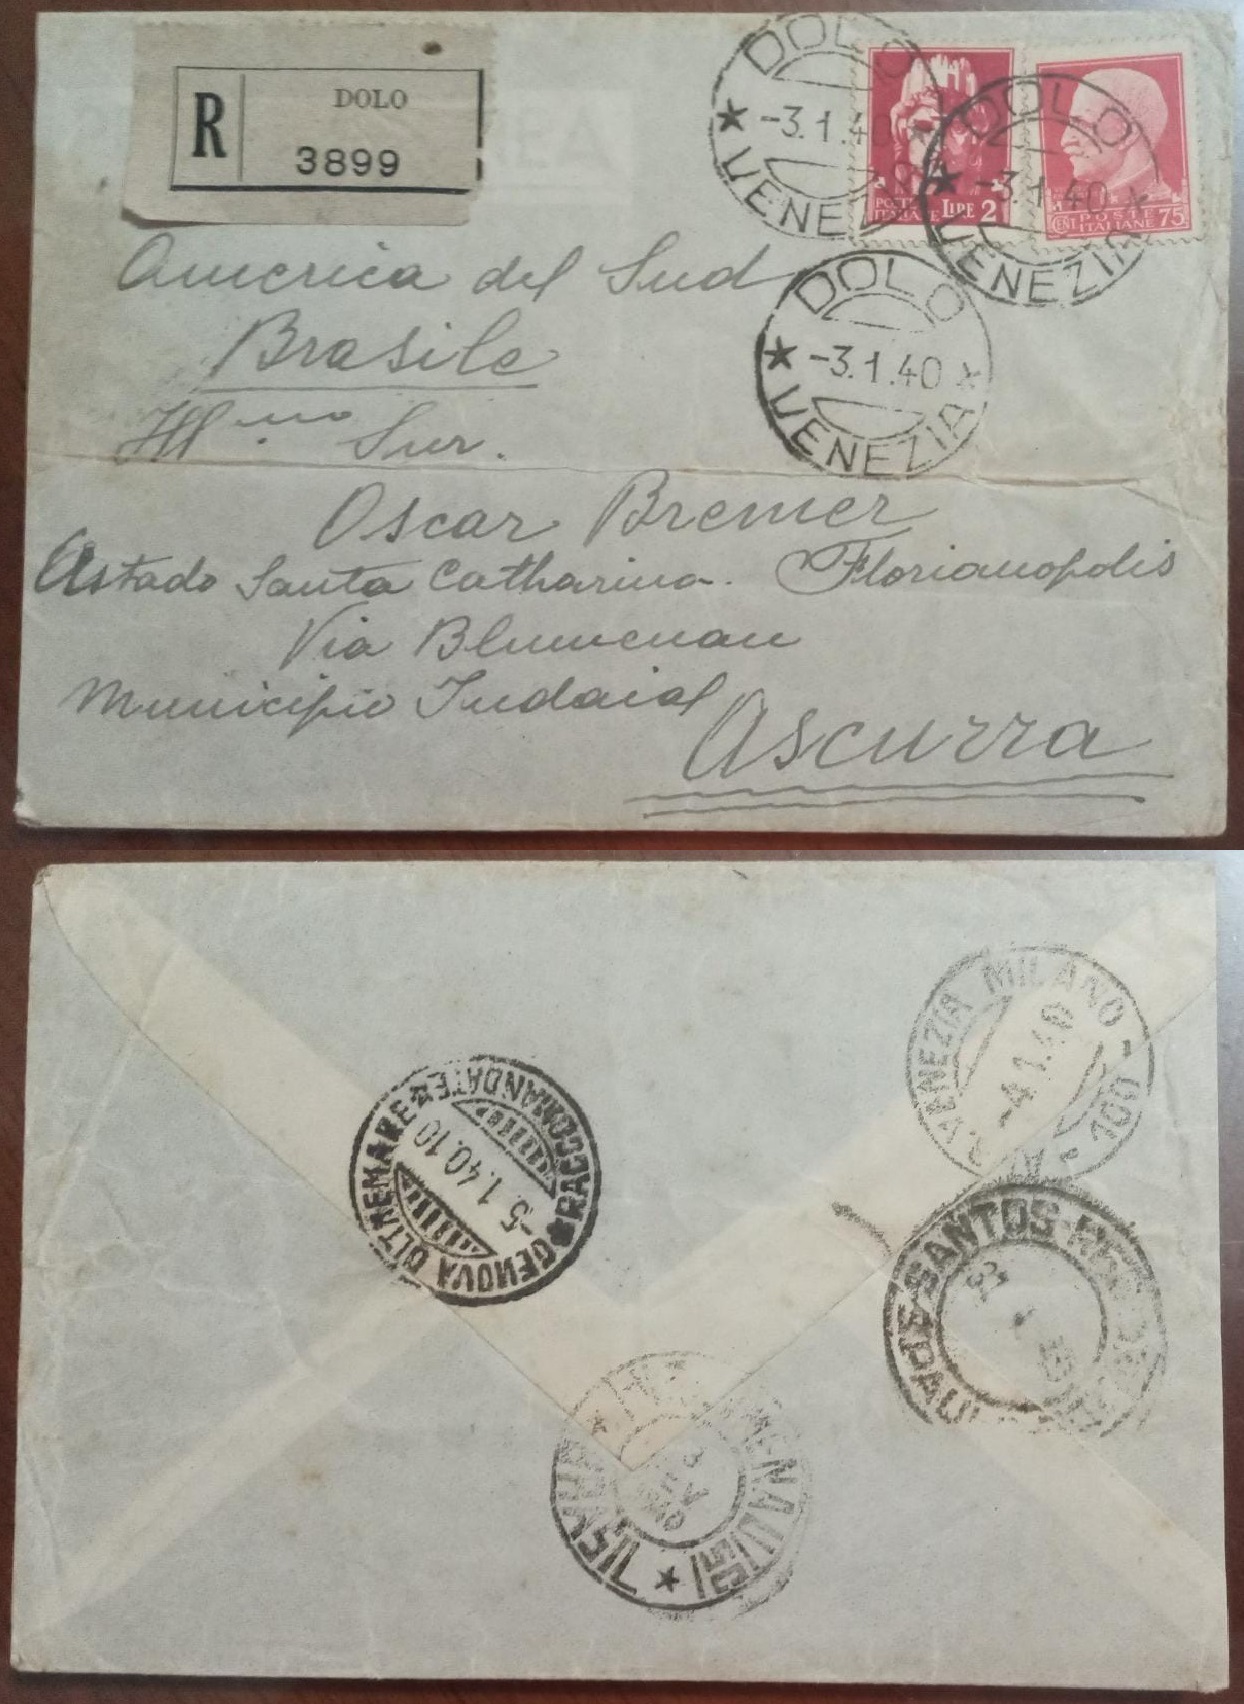 R
DOLO
3899
DOLO
-3.1.40
VENEZIA
POSTE
ITALIANE LIRE 2
DOLO
-3.1.40
VENEZIA
CENT POSTE
ITALIANE 75
DOLO
-3.1.40
VENEZIA
America del Sud
Brasile
Ill.mo Sur.
Oscar Bremer
Astado Santa Catharina. Florianopolis
Via Blumenau
Municipio Indaial
Ascurra
VENEZIA MILANO - 100 -
-4.1.40
GENOVA OLTREMARE
RACCOMANDATE
-5.1.40.10
SANTOS-REG
BRASIL